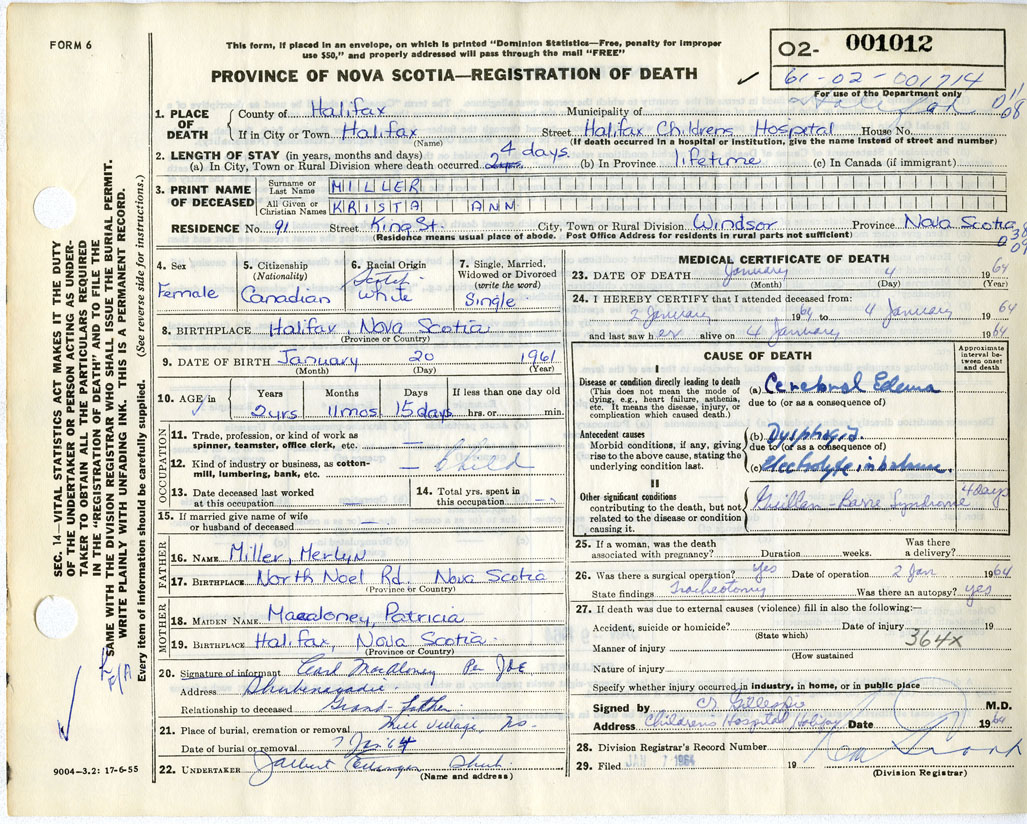 FORM 6
This form, if placed in an envelope, on which is printed "Dominion Statistics—Free, penalty for improper
use $50," and properly addressed will pass through the mail "FREE"
PROVINCE OF NOVA SCOTIA—REGISTRATION OF DEATH
02- 001012
61-02-001714
For use of the Department only
011
08
1. PLACE OF DEATH
County of Halifax Municipality of
If in City or Town Halifax Street Halifax Childrens Hospital House No.
(Name) (If death occurred in a hospital or institution, give the name instead of street and number)
2. LENGTH OF STAY (in years, months and days)
(a) In City, Town or Rural Division where death occurred 4 days (b) In Province lifetime (c) In Canada (if immigrant)
3. PRINT NAME OF DECEASED
Surname or Last Name MILLER
All Given or Christian Names KRISTA ANN
RESIDENCE No. 91 Street King St. City, Town or Rural Division Windsor Province Nova Scotia
(Residence means usual place of abode. Post Office Address for residents in rural parts not sufficient)
4. Sex Female
5. Citizenship (Nationality) Canadian
6. Racial Origin Scotch White
7. Single, Married, Widowed or Divorced (write the word) Single
8. BIRTHPLACE Halifax, Nova Scotia
(Province or Country)
9. DATE OF BIRTH January 20 1961
(Month) (Day) (Year)
10. AGE in Years Months Days If less than one day old
2 yrs 11 mos 15 days hrs. or min.
OCCUPATION
11. Trade, profession, or kind of work as spinner, teamster, office clerk, etc. —
12. Kind of industry or business, as cotton-mill, lumbering, bank, etc. — Child
13. Date deceased last worked at this occupation —
14. Total yrs. spent in this occupation —
15. If married give name of wife or husband of deceased —
FATHER
16. NAME Miller, Merlyn
17. BIRTHPLACE North Noel Rd. Nova Scotia
(Province or Country)
MOTHER
18. MAIDEN NAME Macaloney, Patricia
19. BIRTHPLACE Halifax, Nova Scotia
(Province or Country)
20. Signature of informant Carl MacAloney Per
Address Shubenacadie
Relationship to deceased Grand-father
21. Place of burial, cremation or removal Mill Village, NS
Date of burial or removal 7 Jan 64
22. UNDERTAKER Shub.
(Name and address)
MEDICAL CERTIFICATE OF DEATH
23. DATE OF DEATH January 4 1964
(Month) (Day) (Year)
24. I HEREBY CERTIFY that I attended deceased from:
2 January 1964 to 4 January 1964
and last saw her alive on 4 January 1964
CAUSE OF DEATH
Approximate interval between onset and death
I
Disease or condition directly leading to death
(This does not mean the mode of dying, e.g., heart failure, asthenia, etc. It means the disease, injury, or complication which caused death.)
(a) Cerebral Edema
due to (or as a consequence of)
Antecedent causes
Morbid conditions, if any, giving rise to the above cause, stating the underlying condition last.
(b) Dysphagia
due to (or as a consequence of)
(c) Electrolyte imbalance.
II
Other significant conditions
contributing to the death, but not related to the disease or condition causing it.
Guillan-Barre Syndrome 4 days
25. If a woman, was the death associated with pregnancy? Duration weeks. Was there a delivery?
26. Was there a surgical operation? yes Date of operation 2 Jan 1964
State findings Tracheotomy Was there an autopsy? yes
27. If death was due to external causes (violence) fill in also the following:—
Accident, suicide or homicide? Date of injury 19
(State which)
364x
Manner of injury
(How sustained)
Nature of injury
Specify whether injury occurred in industry, in home, or in public place
Signed by Gillespie M.D.
Address Children's Hospital Halifax Date 1964
28. Division Registrar's Record Number
29. Filed JAN 7 1964 19
(Division Registrar)
SEC. 14—VITAL STATISTICS ACT MAKES IT THE DUTY
OF THE UNDERTAKER OR PERSON ACTING AS UNDER-
TAKER TO OBTAIN ALL THE PARTICULARS REQUIRED
IN THE "REGISTRATION OF DEATH" AND TO FILE THE
SAME WITH THE DIVISION REGISTRAR WHO SHALL ISSUE THE BURIAL PERMIT.
WRITE PLAINLY WITH UNFADING INK. THIS IS A PERMANENT RECORD.
Every item of information should be carefully supplied. (See reverse side for instructions.)
F/A
9004-3.2: 17-6-55